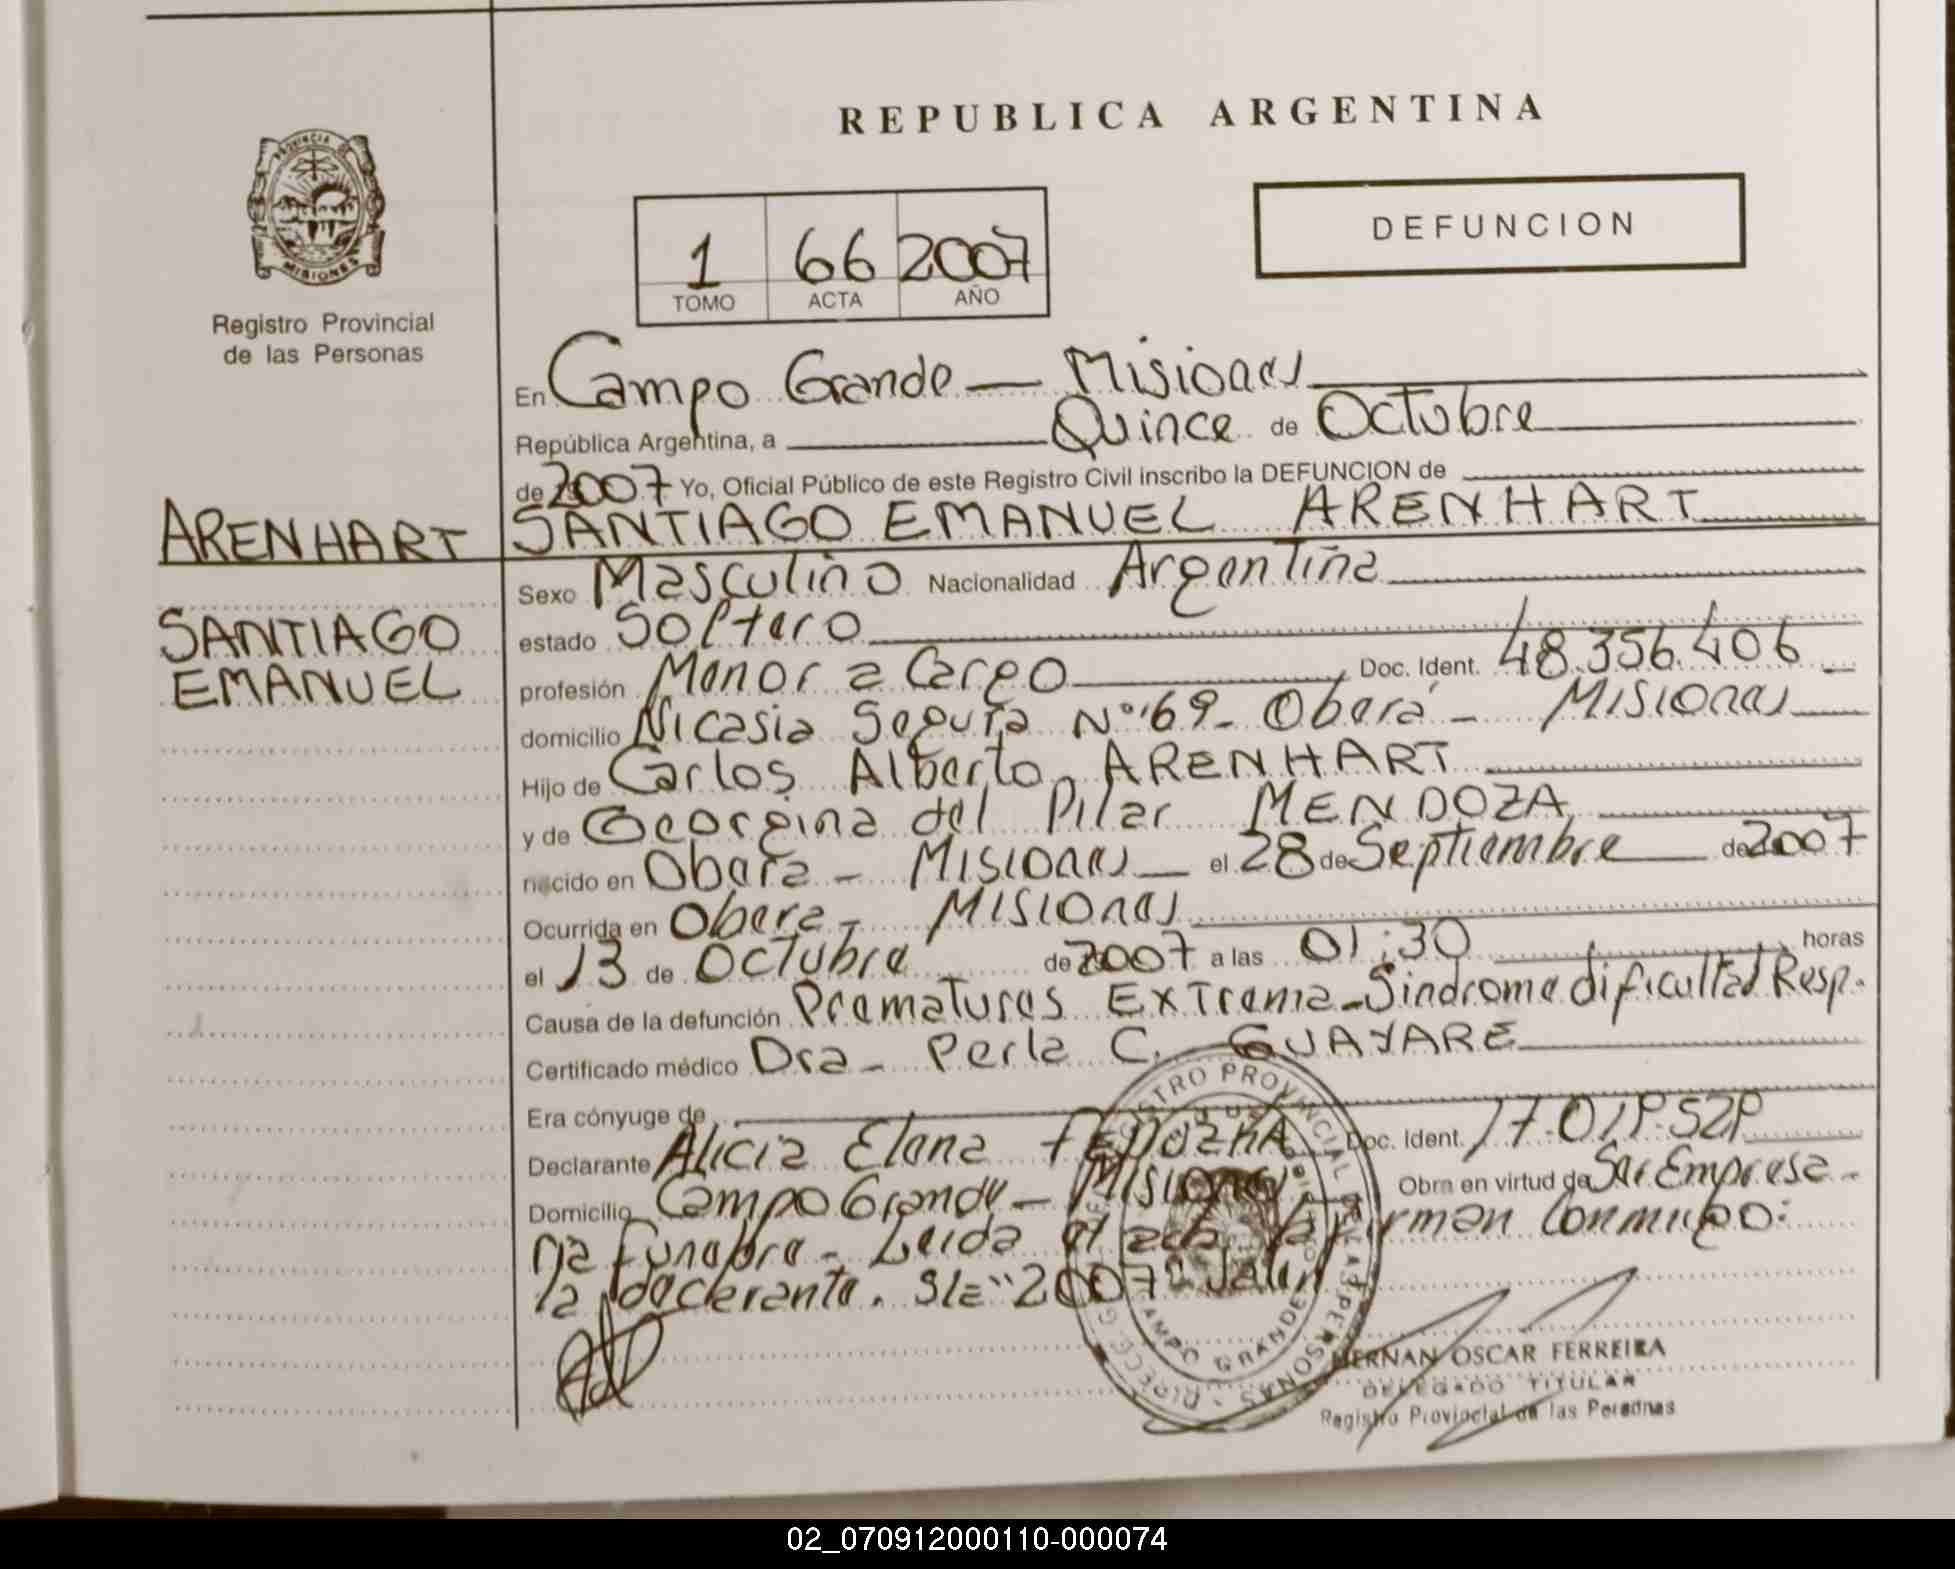 REPUBLICA ARGENTINA
PROVINCIA DE
MISIONES
Registro Provincial
de las Personas
1 66 2007
TOMO ACTA AÑO
DEFUNCION
En Campo Grande — Misiones
República Argentina, a Quince de Octubre
de 2007 Yo, Oficial Público de este Registro Civil inscribo la DEFUNCION de
SANTIAGO EMANUEL ARENHART
ARENHART
SANTIAGO
EMANUEL
Sexo Masculino Nacionalidad Argentina
estado Soltero
profesión Menor a Cargo Doc. Ident. 48.356.406
domicilio Nicasia Segura Nº 169 - Oberá - Misiones
Hijo de Carlos Alberto ARENHART
y de Georgina del Pilar MENDOZA
nacido en Obera - Misiones — el 28 de Septiembre de 2007
Ocurrida en Obera - Misiones
el 13 de Octubre de 2007 a las 01:30 horas
Causa de la defunción Prematurez Extrema - Sindrome dificultad Resp.
Certificado médico Dra - Perla C. GUAYARE
Era cónyuge de
Declarante Alicia Elena Doc. Ident.
Domicilio Campo Grande - Misiones Obra en virtud de Ser Empresa-
ria Funebre - Leida el acta la firman Conmigo:
la declarante. S/e "2007" Valen
HERNAN OSCAR FERREIRA
DELEGADO TITULAR
Registro Provincial de las Personas
REGISTRO PROVINCIAL DE LAS PERSONAS
CAMPO GRANDE
02_070912000110-000074